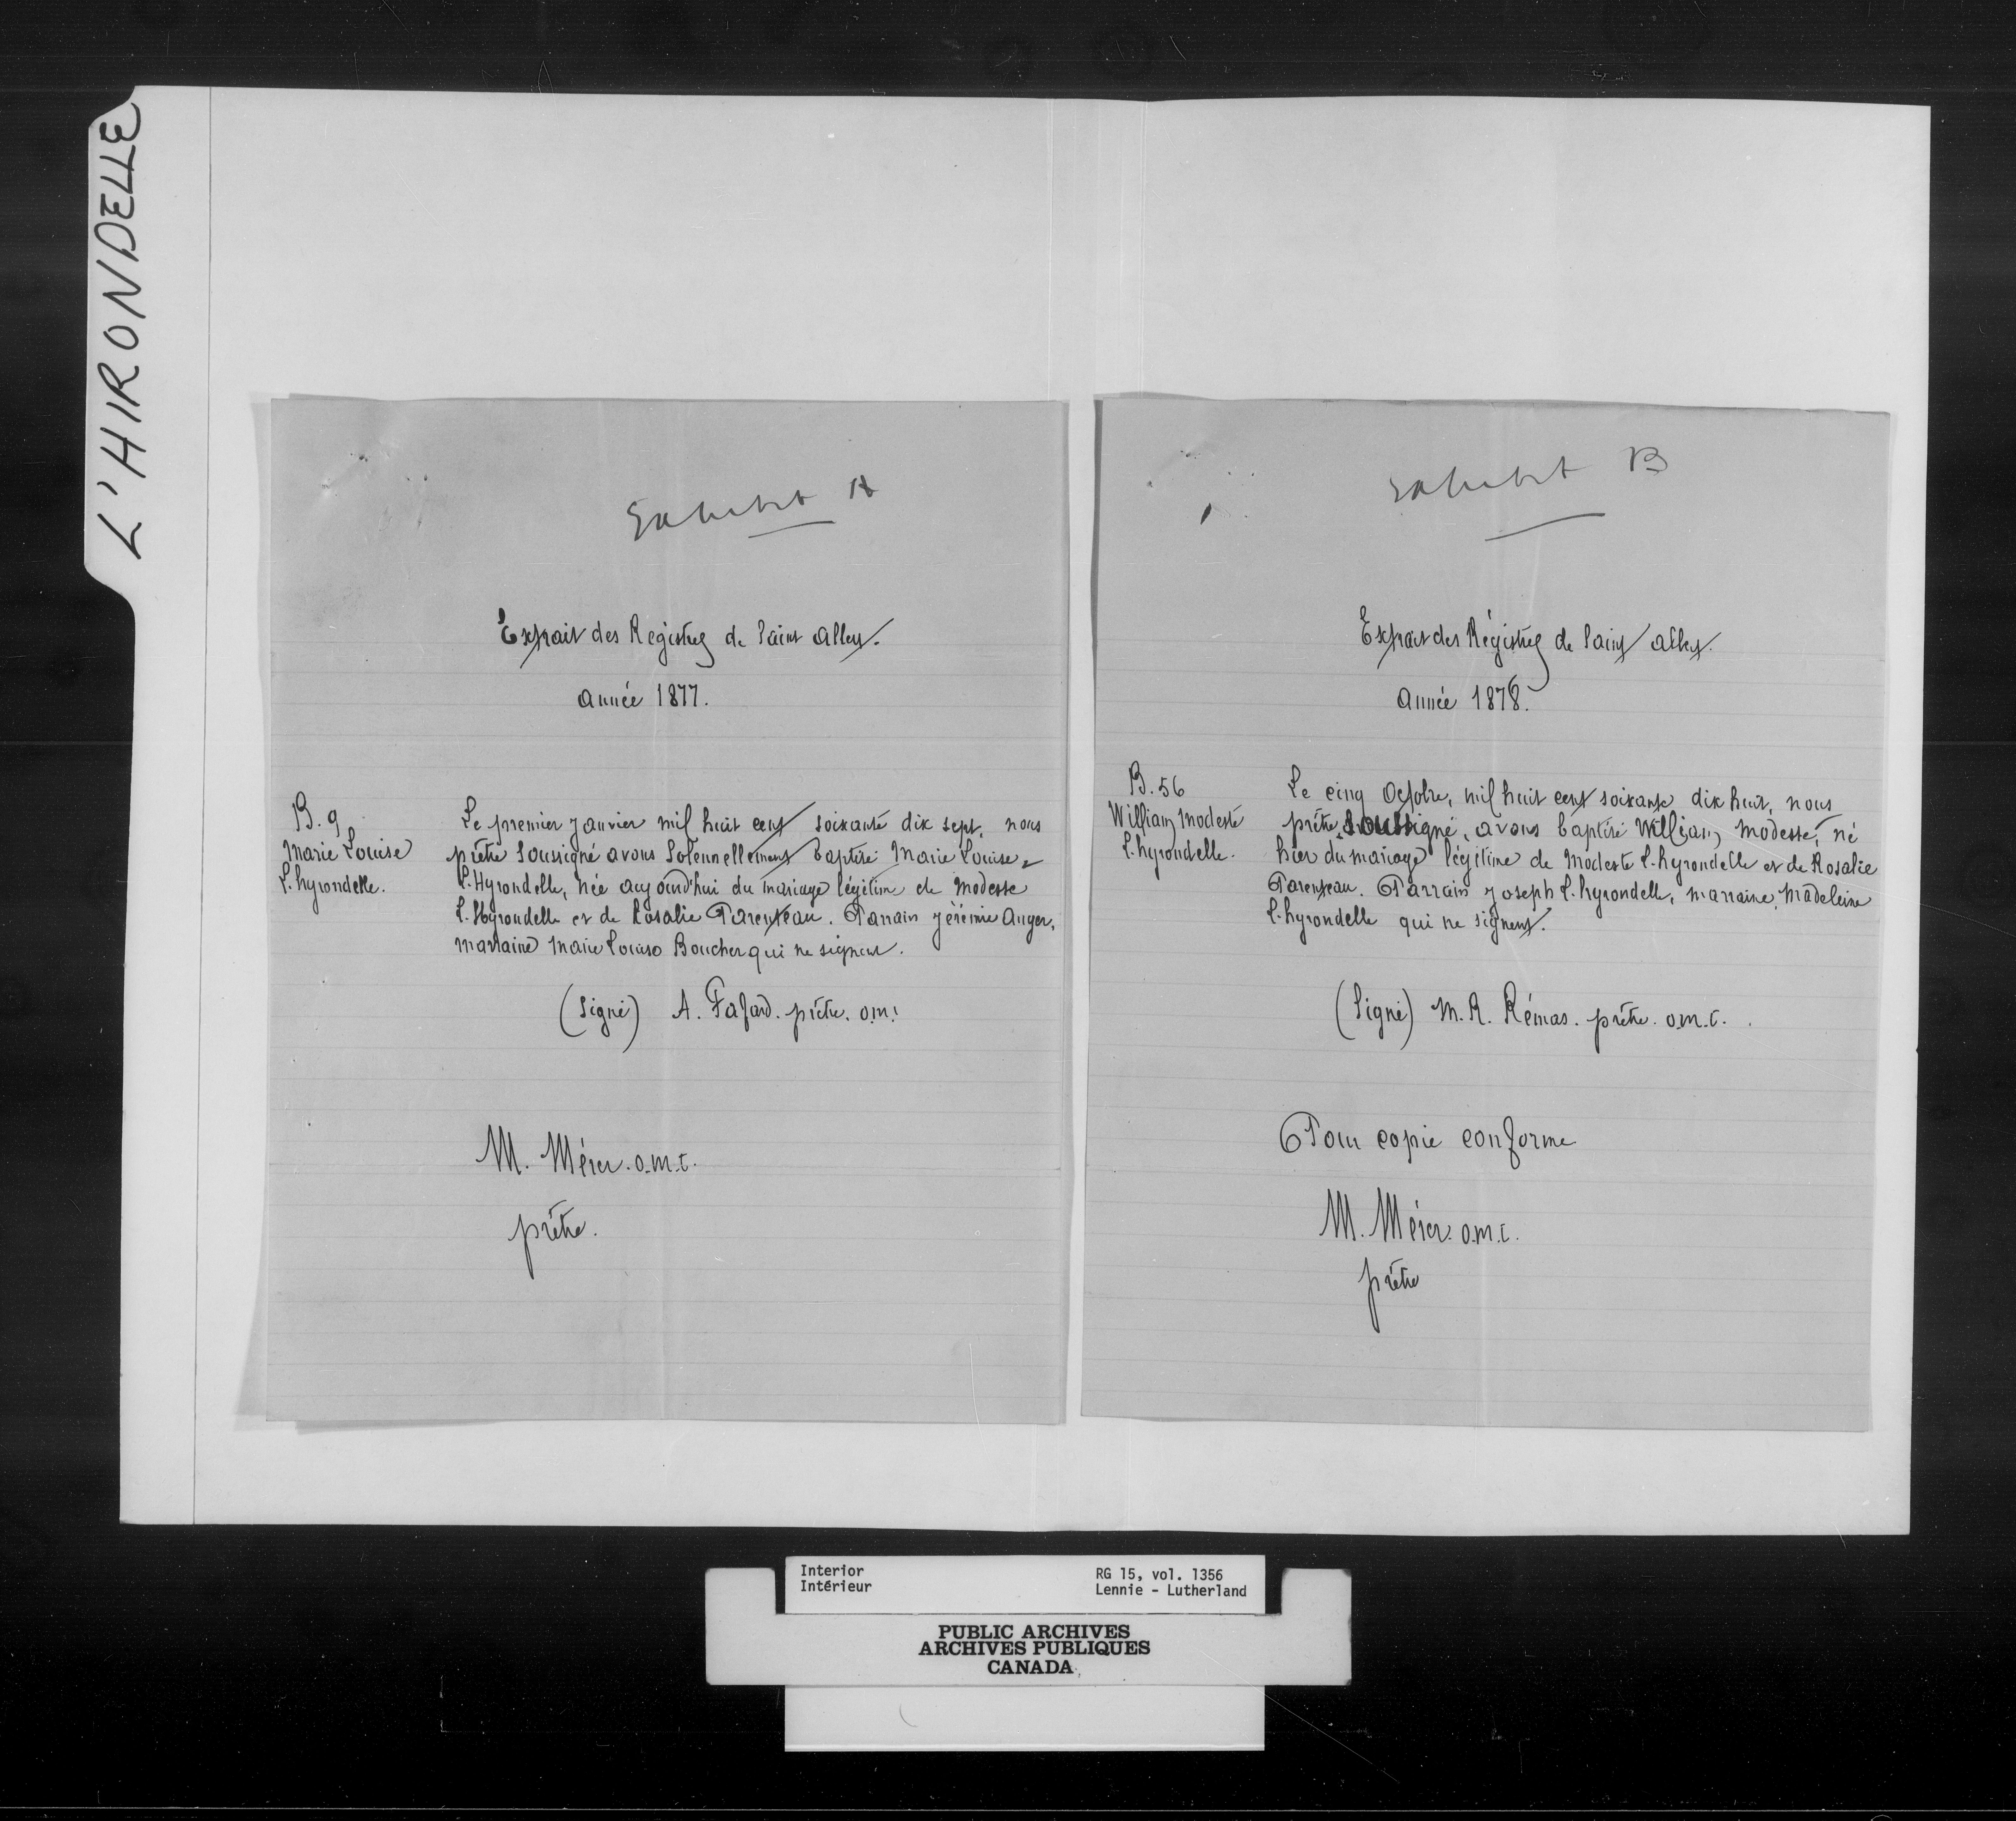 L'HIRONDELLE
Exhibit A
Extrait des Registres de Saint Albert.
Année 1877.
B. 9
Marie Louise
L'hyrondelle.
Le premier Janvier mil huit cent soixante dix sept, nous
prêtre soussigné avons solennellement baptisé Marie Louise
L'Hyrondelle, née aujourd'hui du mariage légitime de Modeste
L'Hyrondelle et de Rosalie Parenteau. Parrain Jérémie Auger,
marraine Marie Louise Boucher qui ne signent.
(Signé) A. Fafard. prêtre. o.m.i
M. Mérer. o.m.i.
prêtre.
Exhibit B
Extrait des Régistres de Saint Albert.
Année 1878.
B. 56
William Modeste
L'hyrondelle.
Le cinq Octobre, mil huit cent soixante dix huit, nous
prêtre, soussigné, avons baptisé William, Modeste, né
hier du mariage légitime de Modeste L'hyrondelle et de Rosalie
Parenteau. Parrain Joseph L'hyrondelle, marraine, Madeleine
L'hyrondelle qui ne signent.
(Signé) M. R. Rémas. prêtre. o.m.i.
Pour copie conforme
M. Mérer. o.m.i.
prêtre
Interior
Intérieur
RG 15, vol. 1356
Lennie - Lutherland
PUBLIC ARCHIVES
ARCHIVES PUBLIQUES
CANADA